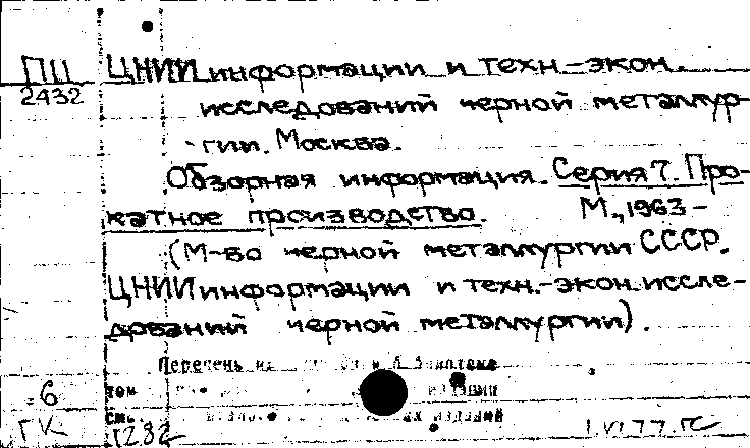 ПЦ ЦНИИ информации и техн.-экон.
2432 исследований черной металлур-
-гии. Москва.
Обзорная информация. Серия 7. Про-
катное производство. М., 1963-
(М-во черной металлургии СССР.
ЦНИИ информации и техн.-экон. иссле-
дований черной металлургии).
Перечень
том изданий
6 См. изданий
ГК Г282 1.VI.77.ГС